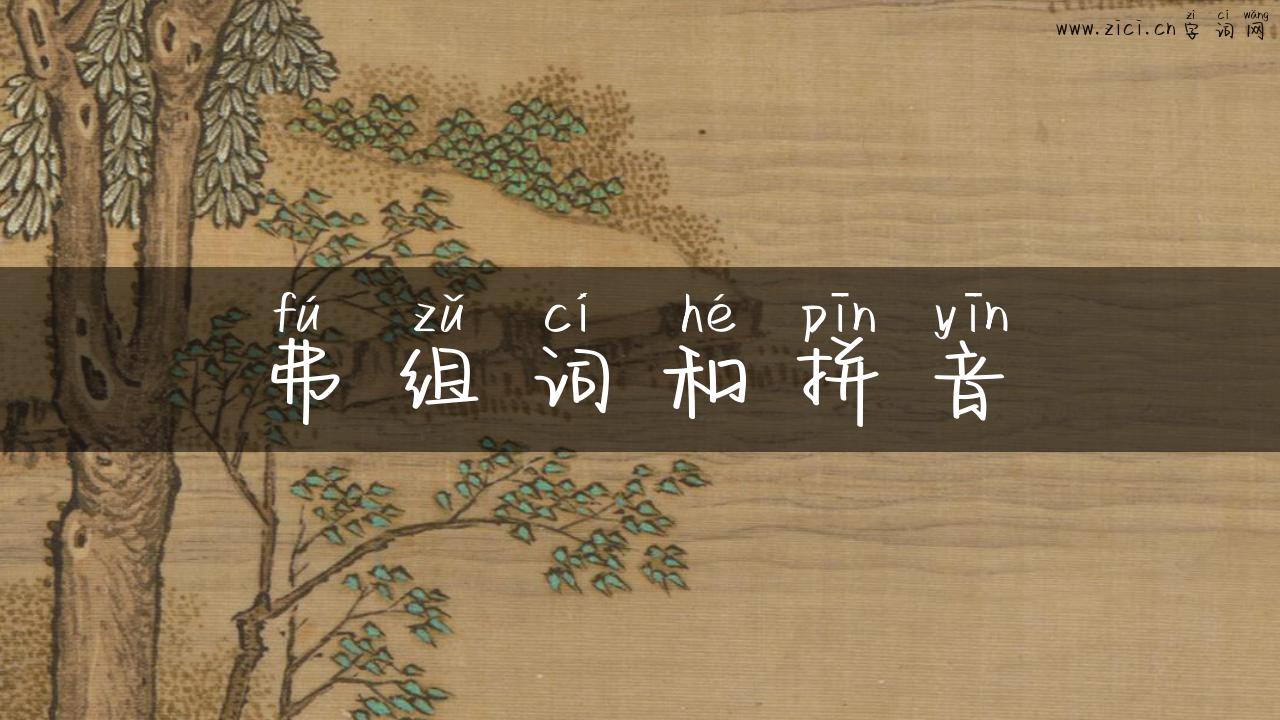 zì cí wǎng
www.zici.cn 字词网
fú zǔ cí hé pīn yīn
弗组词和拼音